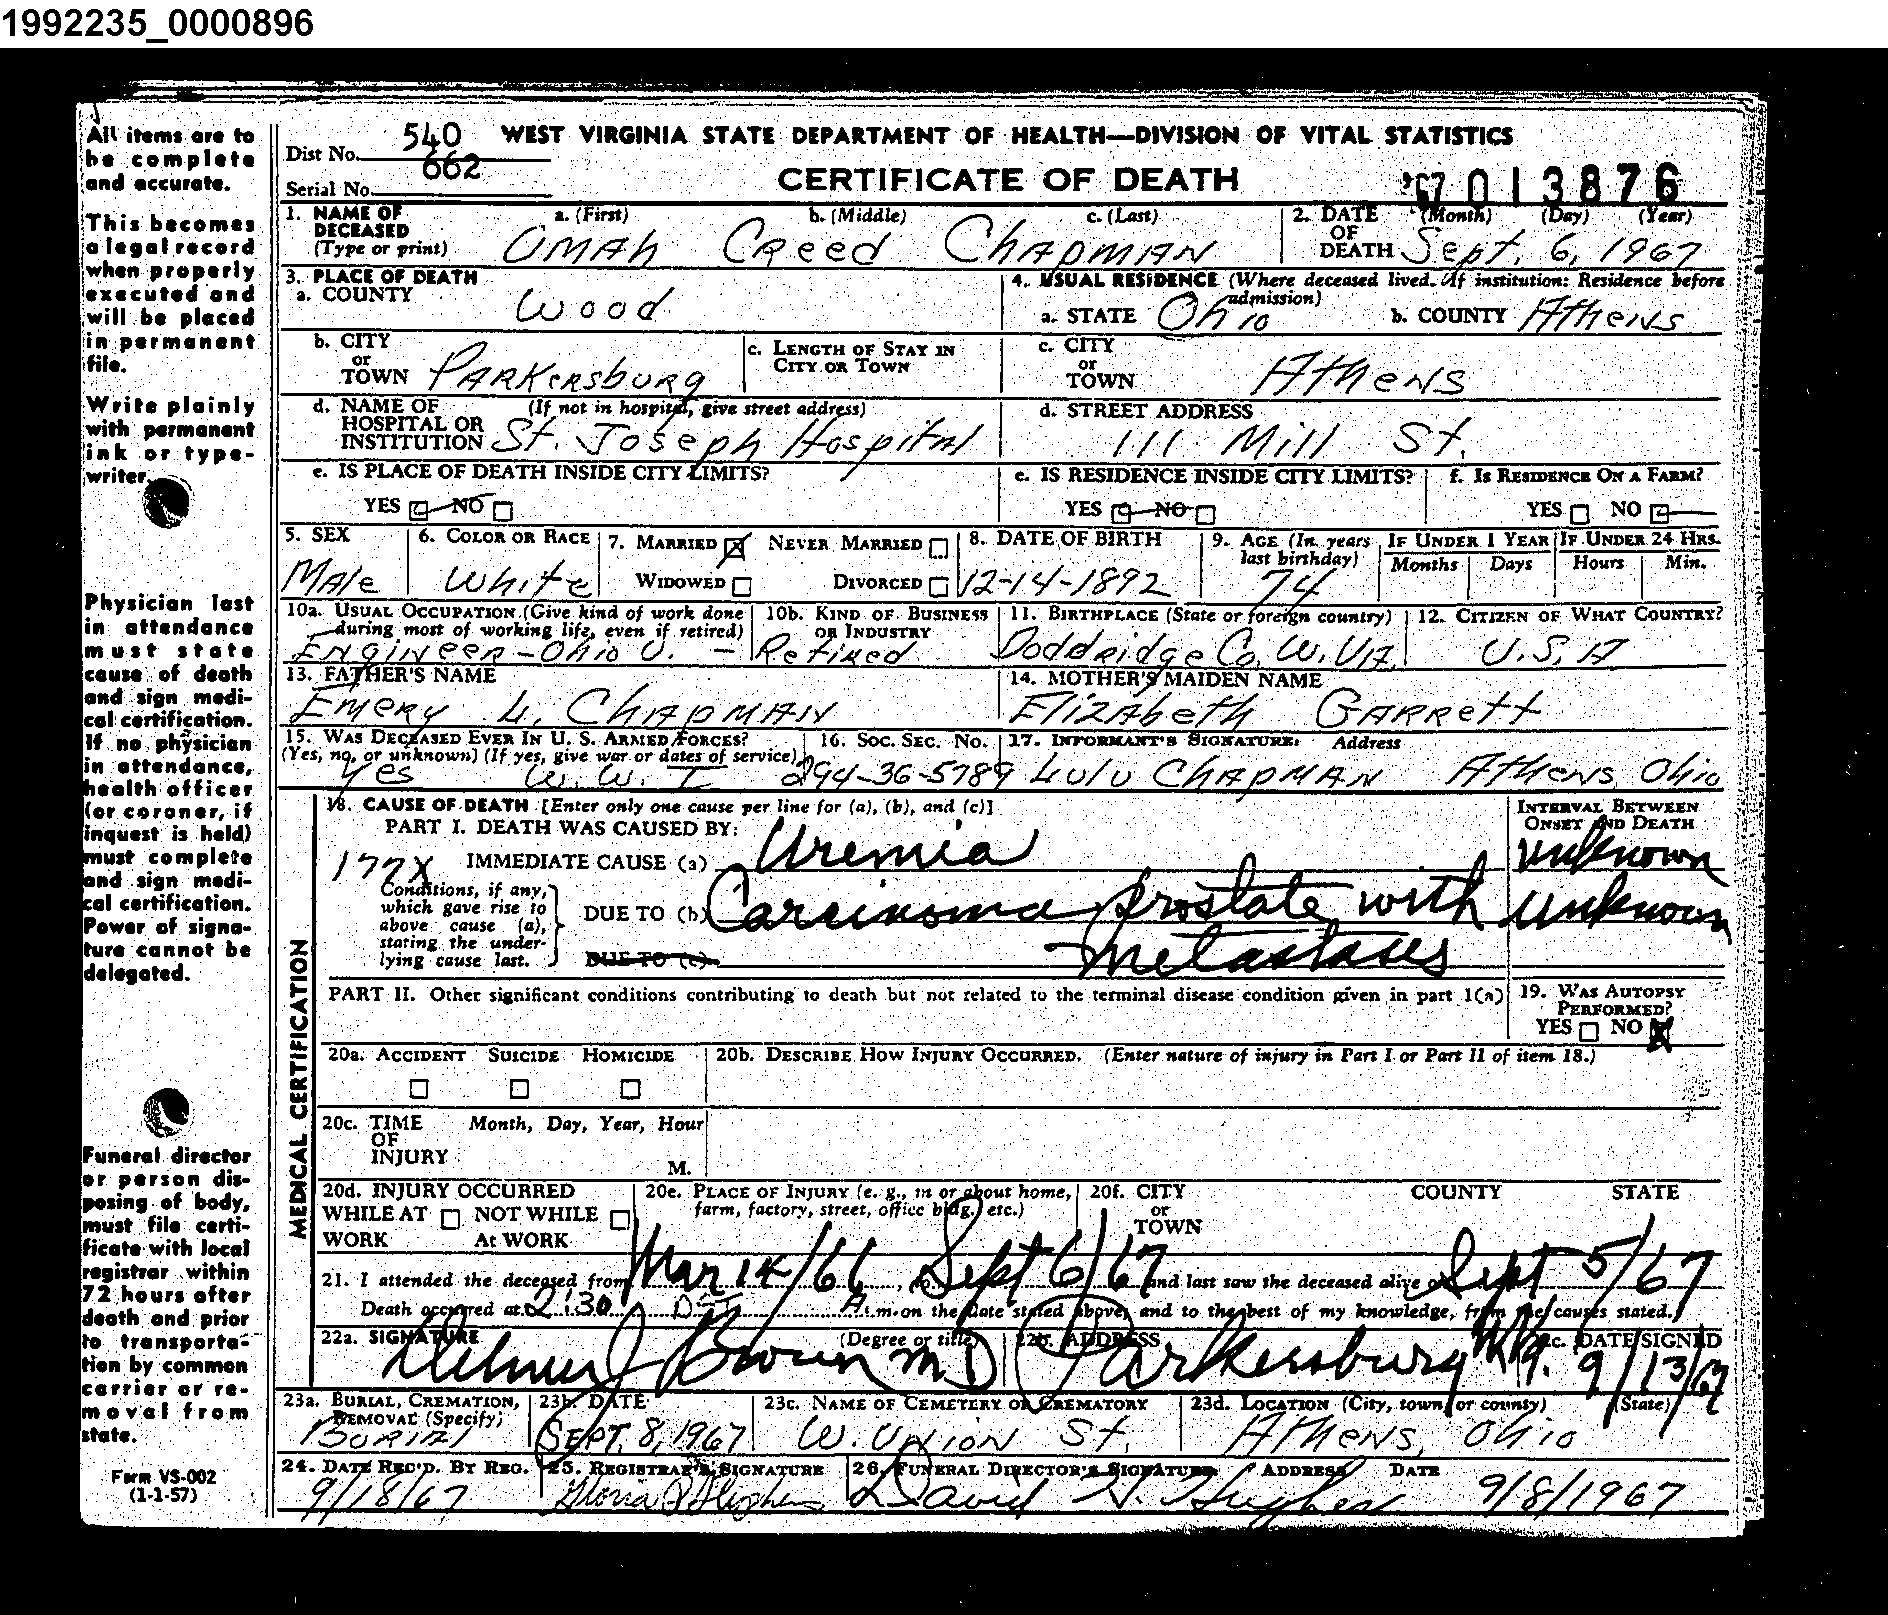 1992235_0000896
All items are to
be complete
and accurate.
This becomes
a legal record
when properly
executed and
will be placed
in permanent
file.
Write plainly
with permanent
ink or type-
writer.
Physician last
in attendance
must state
cause of death
and sign medi-
cal certification.
If no physician
in attendance,
health officer
(or coroner, if
inquest is held)
must complete
and sign medi-
cal certification.
Power of signa-
ture cannot be
delegated.
Funeral director
or person dis-
posing of body,
must file certi-
ficate with local
registrar within
72 hours after
death and prior
to transporta-
tion by common
carrier or re-
moval from
state.
Form VS-002
(1-1-57)
WEST VIRGINIA STATE DEPARTMENT OF HEALTH—DIVISION OF VITAL STATISTICS
Dist No. 540
Serial No. 662
CERTIFICATE OF DEATH
'67 013876
1. NAME OF DECEASED (Type or print) a. (First) b. (Middle) c. (Last)
Omah Creed Chapman
2. DATE OF DEATH (Month) (Day) (Year)
Sept. 6, 1967
3. PLACE OF DEATH
a. COUNTY Wood
4. USUAL RESIDENCE (Where deceased lived. If institution: Residence before admission)
a. STATE Ohio b. COUNTY Athens
b. CITY or TOWN Parkersburg
c. LENGTH OF STAY IN CITY OR TOWN
c. CITY or TOWN Athens
d. NAME OF HOSPITAL OR INSTITUTION (If not in hospital, give street address)
St. Joseph Hospital
d. STREET ADDRESS
111 Mill St.
e. IS PLACE OF DEATH INSIDE CITY LIMITS?
YES NO
e. IS RESIDENCE INSIDE CITY LIMITS?
YES NO
f. IS RESIDENCE ON A FARM?
YES NO
5. SEX Male
6. COLOR OR RACE White
7. MARRIED NEVER MARRIED
WIDOWED DIVORCED
8. DATE OF BIRTH 12-14-1892
9. AGE (In years last birthday) 74
IF UNDER 1 YEAR Months Days
IF UNDER 24 HRS. Hours Min.
10a. USUAL OCCUPATION (Give kind of work done during most of working life, even if retired)
Engineer - Ohio U. -
10b. KIND OF BUSINESS OR INDUSTRY
Retired
11. BIRTHPLACE (State or foreign country)
Doddridge Co. W. VA.
12. CITIZEN OF WHAT COUNTRY?
U.S.A
13. FATHER'S NAME
Emery L. Chapman
14. MOTHER'S MAIDEN NAME
Elizabeth Garrett
15. WAS DECEASED EVER IN U. S. ARMED FORCES?
(Yes, no, or unknown) (If yes, give war or dates of service)
Yes W. W. I
16. SOC. SEC. NO.
294-36-5789
17. INFORMANT'S SIGNATURE: Address
Lulu Chapman Athens, Ohio
MEDICAL CERTIFICATION
18. CAUSE OF DEATH [Enter only one cause per line for (a), (b), and (c)]
PART I. DEATH WAS CAUSED BY:
INTERVAL BETWEEN ONSET AND DEATH
177X
IMMEDIATE CAUSE (a) Uremia unknown
Conditions, if any, which gave rise to above cause (a), stating the underlying cause last.
DUE TO (b) Carcinoma prostate with unknown
DUE TO (c) metastases
PART II. Other significant conditions contributing to death but not related to the terminal disease condition given in part 1(a)
19. WAS AUTOPSY PERFORMED?
YES NO
20a. ACCIDENT SUICIDE HOMICIDE
20b. DESCRIBE HOW INJURY OCCURRED. (Enter nature of injury in Part I or Part II of item 18.)
20c. TIME OF INJURY Month, Day, Year, Hour
M.
20d. INJURY OCCURRED
WHILE AT WORK NOT WHILE At WORK
20e. PLACE OF INJURY (e. g., in or about home, farm, factory, street, office bldg. etc.)
20f. CITY or TOWN COUNTY STATE
21. I attended the deceased from Mar 14/66, to Sept 6/67 and last saw the deceased alive on Sept 5/67
Death occurred at 2:30 DST A. m. on the date stated above, and to the best of my knowledge, from the causes stated.
22a. SIGNATURE (Degree or title)
Delmer J Brown M D
22b. ADDRESS
Parkersburg W.Va.
22c. DATE SIGNED
9/13/67
23a. BURIAL, CREMATION, REMOVAL (Specify)
Burial
23b. DATE
Sept. 8, 1967
23c. NAME OF CEMETERY OR CREMATORY
W. Union St.
23d. LOCATION (City, town, or county) (State)
Athens, Ohio
24. DATE REC'D. BY REG.
9/18/67
25. REGISTRAR'S SIGNATURE
Gloria
26. FUNERAL DIRECTOR'S SIGNATURE ADDRESS DATE
David Hughes 9/8/1967